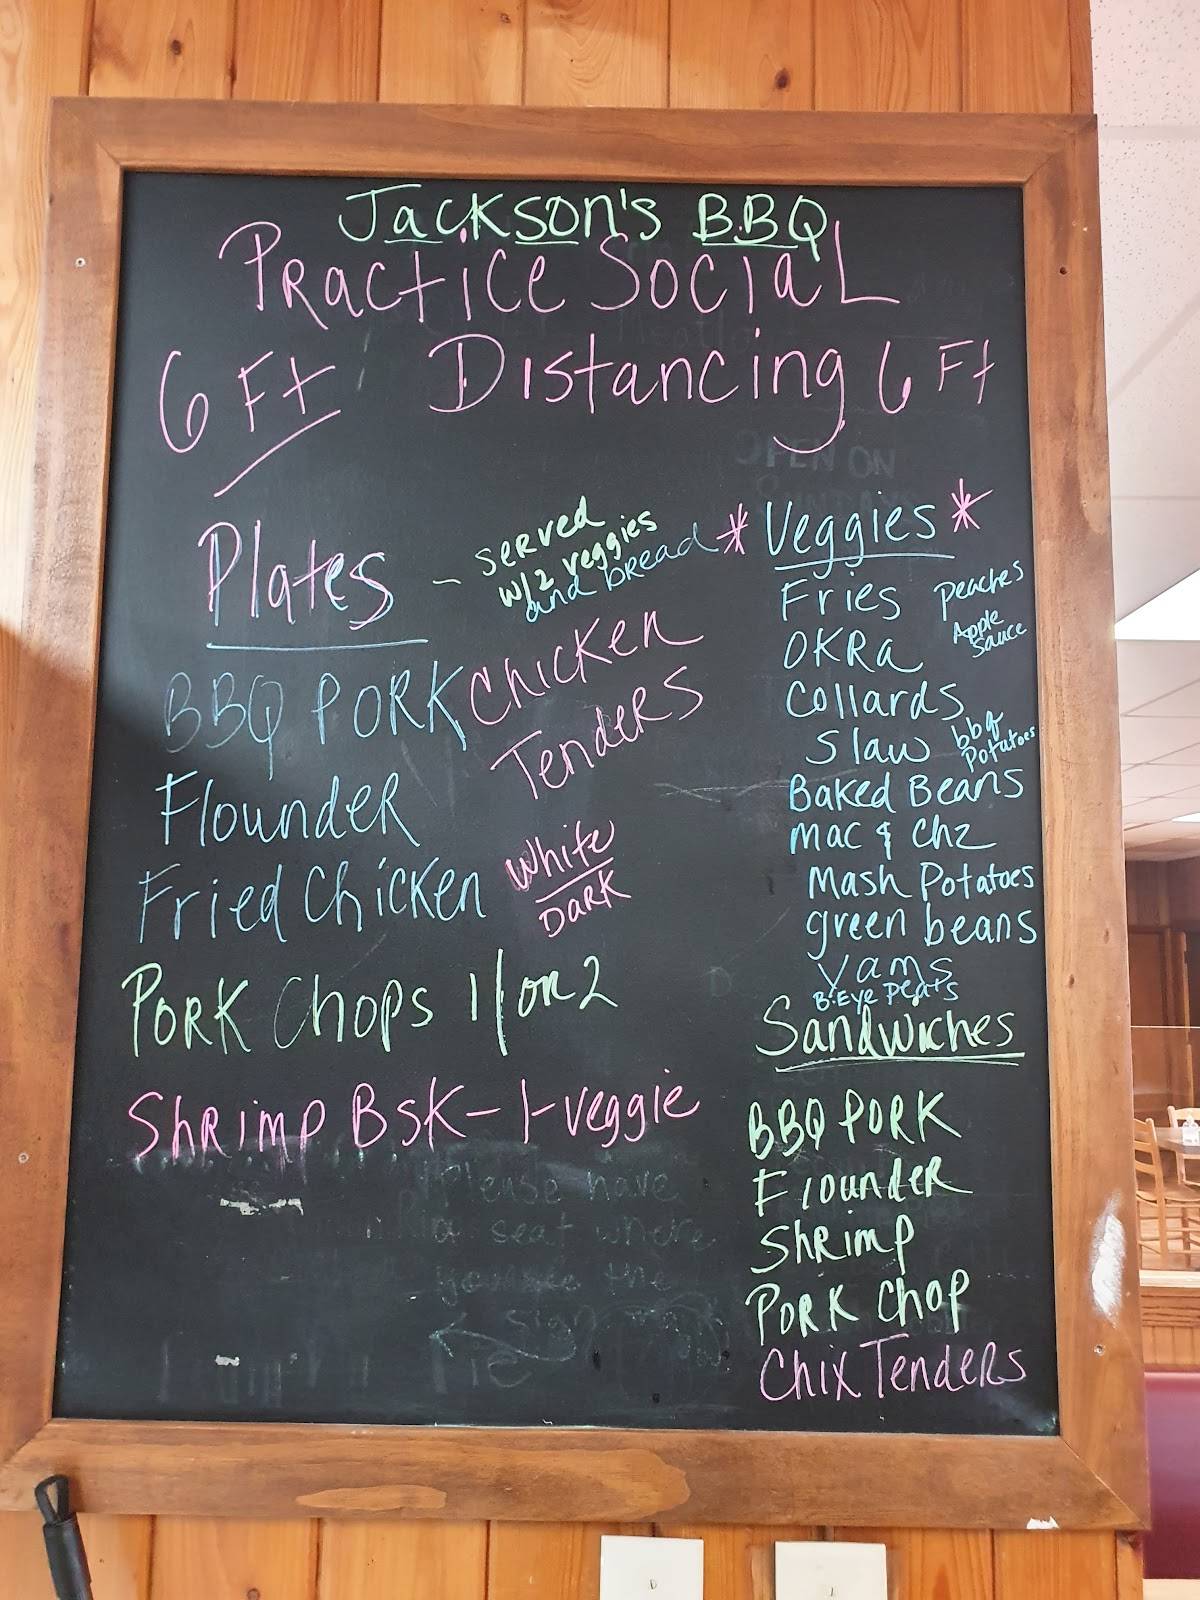 Jackson's BBQ
Practice Social
6 Ft Distancing 6 Ft
Plates - served
w/2 veggies
and bread
BBQ Pork
Chicken
Tenders
Flounder
Fried Chicken
White
Dark
Pork Chops 1/or 2
Shrimp BSK - 1-veggie
Please have
a seat where
you see the
sign
* Veggies *
Fries
Peaches
Okra
Apple
Sauce
Collards
Slaw
bbq
Potatoes
Baked Beans
Mac & Chz
Mash Potatoes
green beans
Yams
B-Eye Peas
Sandwiches
BBQ Pork
Flounder
Shrimp
Pork Chop
Chix Tenders
OPEN ON